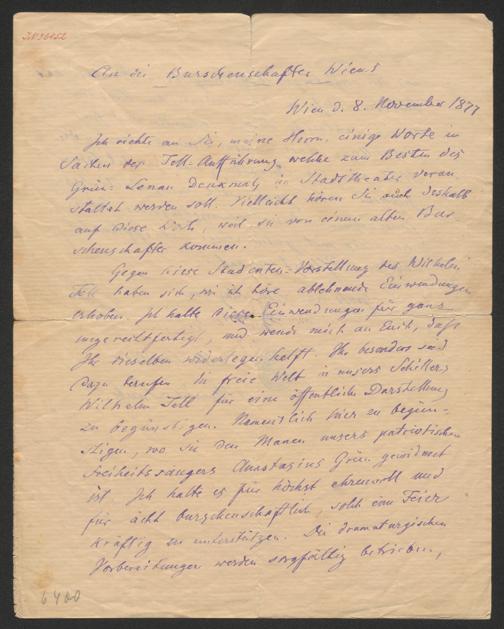 An die Burschenschafter Wiens
Wien d. 8. November 1877
Ich richte an Sie, meine Herrn, einige Worte in
Sachen der Tell-Aufführung, welche zum Besten des
Grün-Lenau Denkmals im Stadttheater veran
staltet werden soll. Vielleicht hören Sie auch deshalb
auf diese Worte, weil sie von einem alten Bur
schenschafter kommen.
Gegen diese Studenten-Vorstellung des Wilhelm
Tell haben sich, wie ich höre ablehnende Einwendungen
erhoben. Ich halte diese Einwendungen für ganz
ungerechtfertigt, und wende mich an Euch, daß
Ihr dieselben widerlegen helft. Ihr besonders seid
dazu berufen, die freie Welt in unsers Schillers
Wilhelm Tell für eine öffentliche Darstellung
zu begünstigen. Namentlich hier zu begün-
stigen, wo sie den Manen unsers patriotischen
Freiheitssängers Anastasius Grün gewidmet
ist. Ich halte es für höchst ehrenvoll und
für ächt burschenschaftlich, solch eine Feier
kräftig zu unterstützen. Die dramaturgischen
Vorbereitungen werden sorgfältig betrieben,
6400